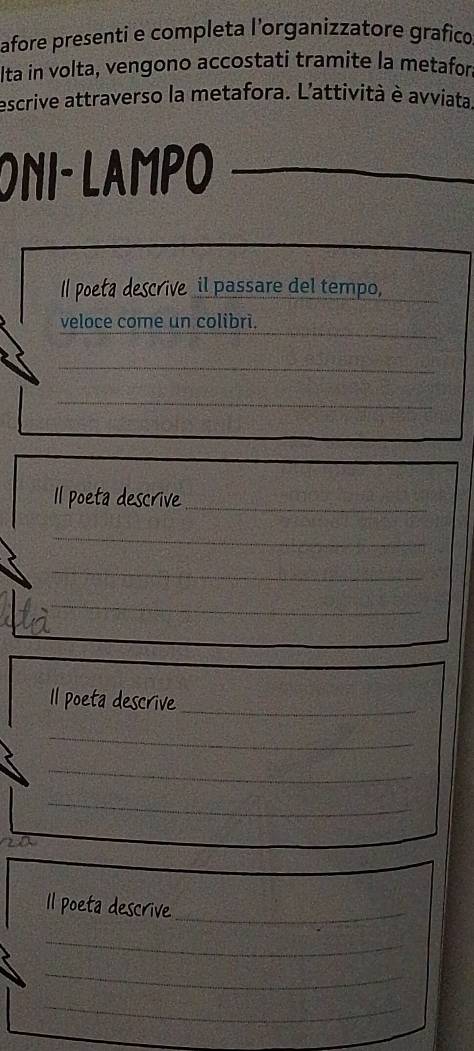 afore presenti e completa l'organizzatore grafico
lta in volta, vengono accostati tramite la metafor
escrive attraverso la metafora. L'attività è avviata.
ONI-LAMPO
Il poeta descrive il passare del tempo,
veloce come un colibrì.
Il poeta descrive
ltà
Il poeta descrive
za
Il poeta descrive